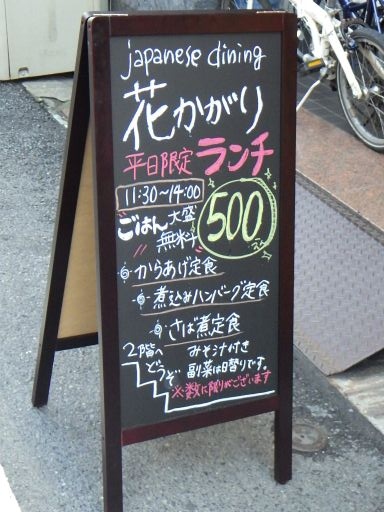 japanese dining
花かがり
平日限定 ランチ
11:30~14:00
ごはん大盛
無料
500
からあげ定食
煮込みハンバーグ定食
さば煮定食
2階へ
どうぞ
みそ汁付き
副菜は日替りです。
※数に限りがございます